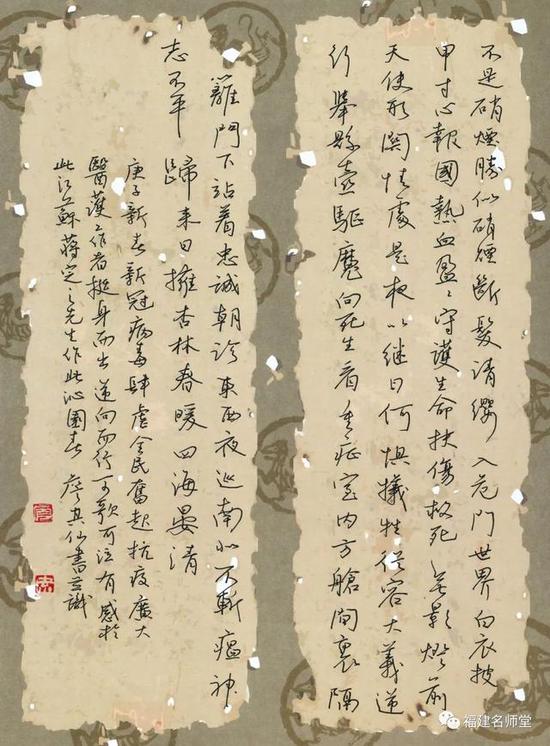 不是硝煙勝似硝煙斷髮請纓入危門世界白衣披
甲寸心報國熱血盈〻守護生命扶傷救死無影燈前
天使形關情處是夜以繼日何懼犧牲從容大義逆
行舉縣壺驅魔向死生看重症室内方艙間裏隔
離門下站着忠诚朝診東西夜巡南北不斬瘟神
志不平
歸来日擁杏林春暖四海晏清
庚子新春新冠病毒肆虐全民奮起抗疫廣大
醫護工作者挺身而出逆向而行可歌可泣有感於
此江蘇蔣定之先生作此沁園春 廖其仙書並識
福建名师堂